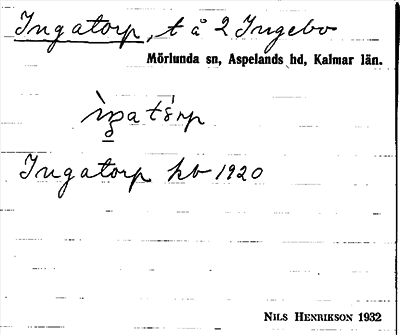 Ingatorp, t å 2 Ingebo
Mörlunda sn, Aspelands hd, Kalmar län.
Ingatorp kb 1920
NILS HENRIKSON 1932